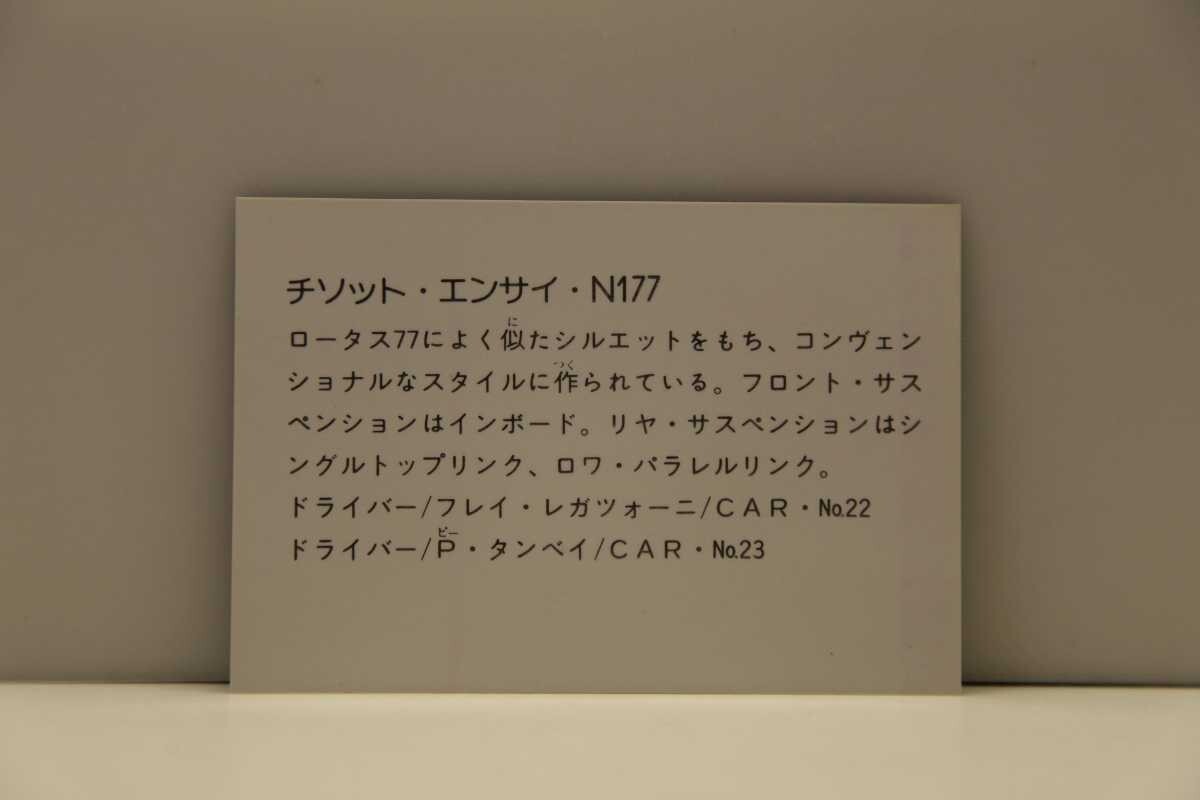 チソット・エンサイ・N177
ロータス77によく似たシルエットをもち、コンヴェン
ショナルなスタイルに作られている。フロント・サス
ペンションはインボード。リヤ・サスペンションはシ
ングルトップリンク、ロワ・パラレルリンク。
ドライバー/フレイ・レガツォーニ/CAR・No.22
ドライバー/P・タンベイ/CAR・No.23